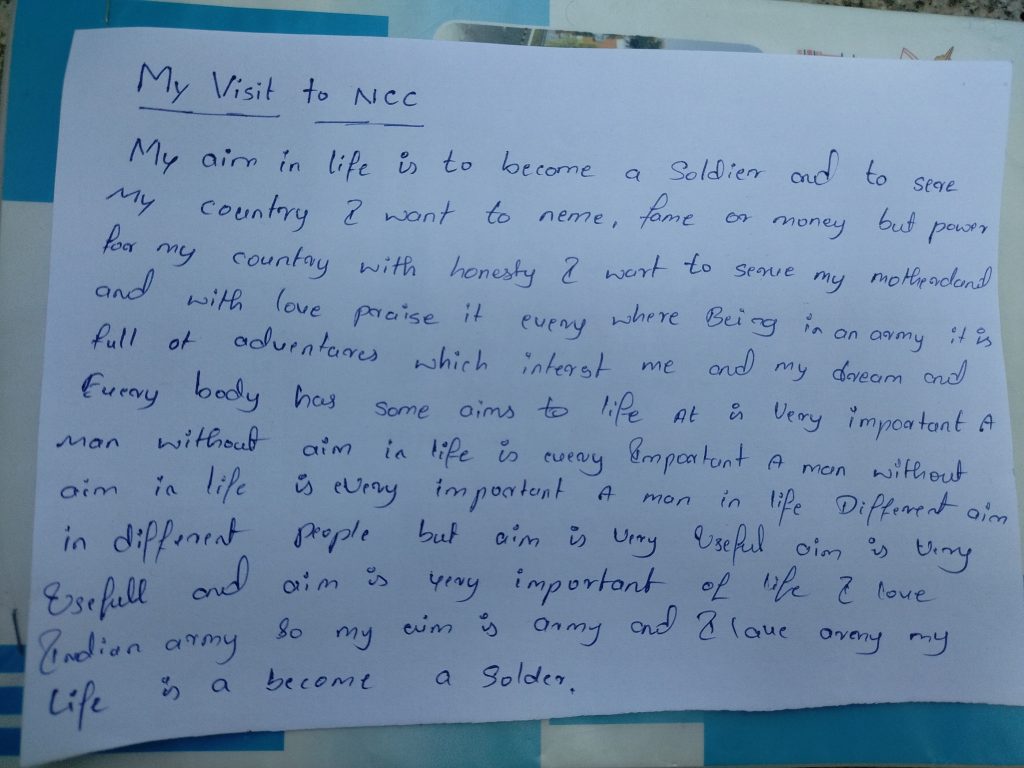 My Visit to NCC
My aim in life is to become a Soldier and to sere
My country I want to neme, fame or money but power
for my country with honesty I wart to serve my motherland
and with love praise it every where Being in an army it is
full of adventures which interst me and my dream and
Every body has some aims to life At is Very important A
man without aim in life is every Important A man without
aim in life is every important A man in life Different aim
in different people but aim is Very Useful aim is Very
Usefull and aim is very important of life I love
Indian army So my aim is army and I lave army my
Life is a become a Solder.